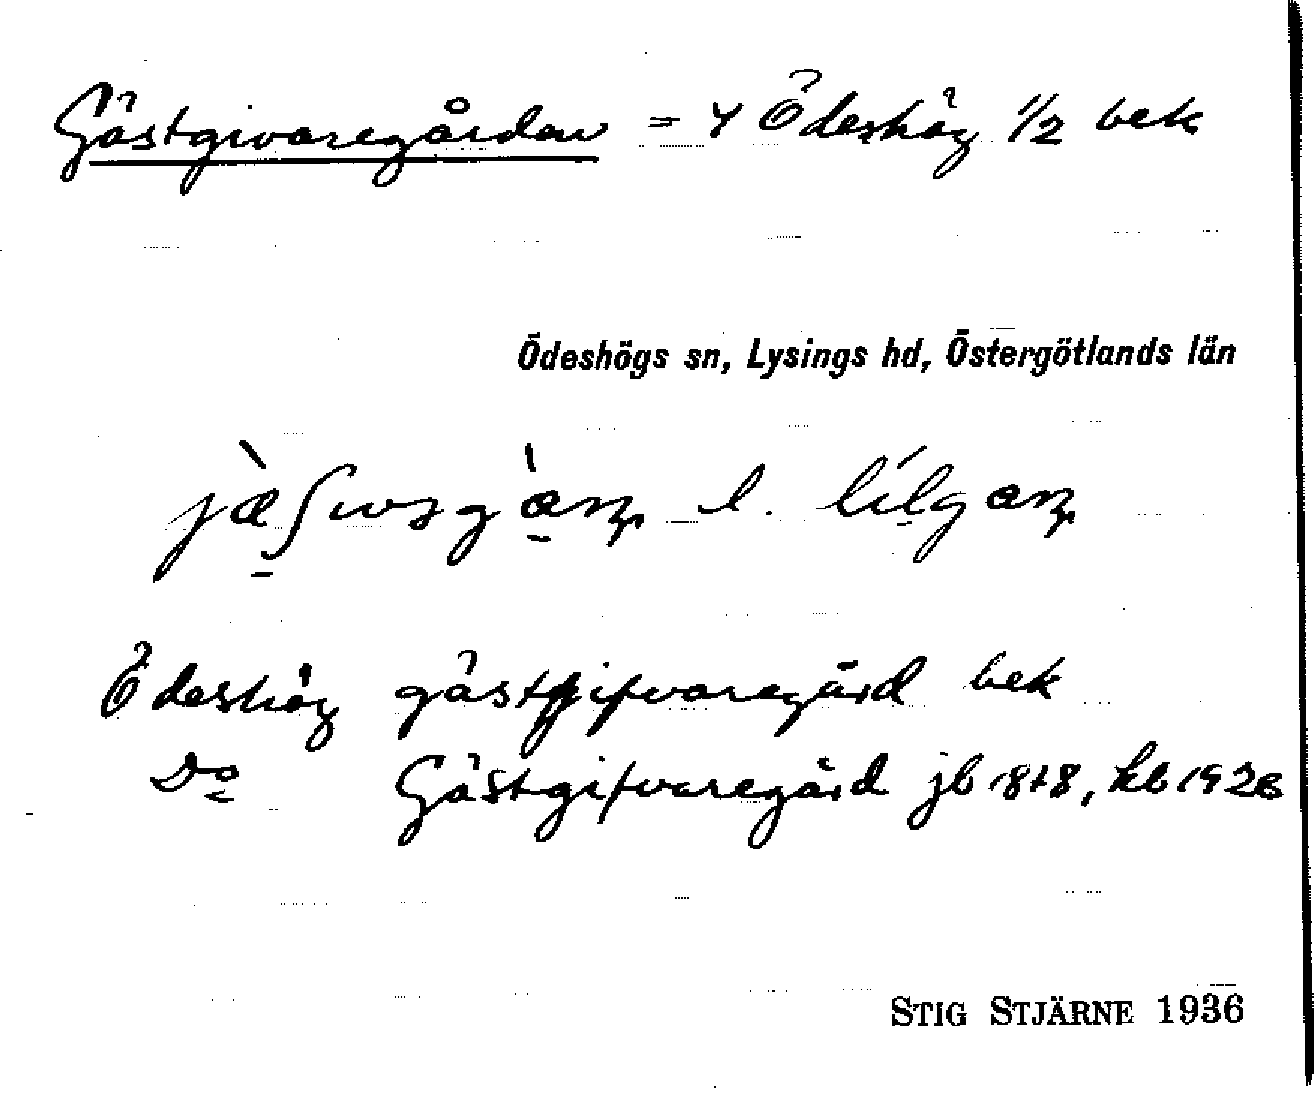 Gästgivaregården = 4 Ödeshög 1/2 bek
Ödeshögs sn, Lysings hd, Östergötlands län
l.
Ödeshög gästgifvaregård bek
Do Gästgifvaregård jb 1878, kb 1926
STIG STJÄRNE 1936